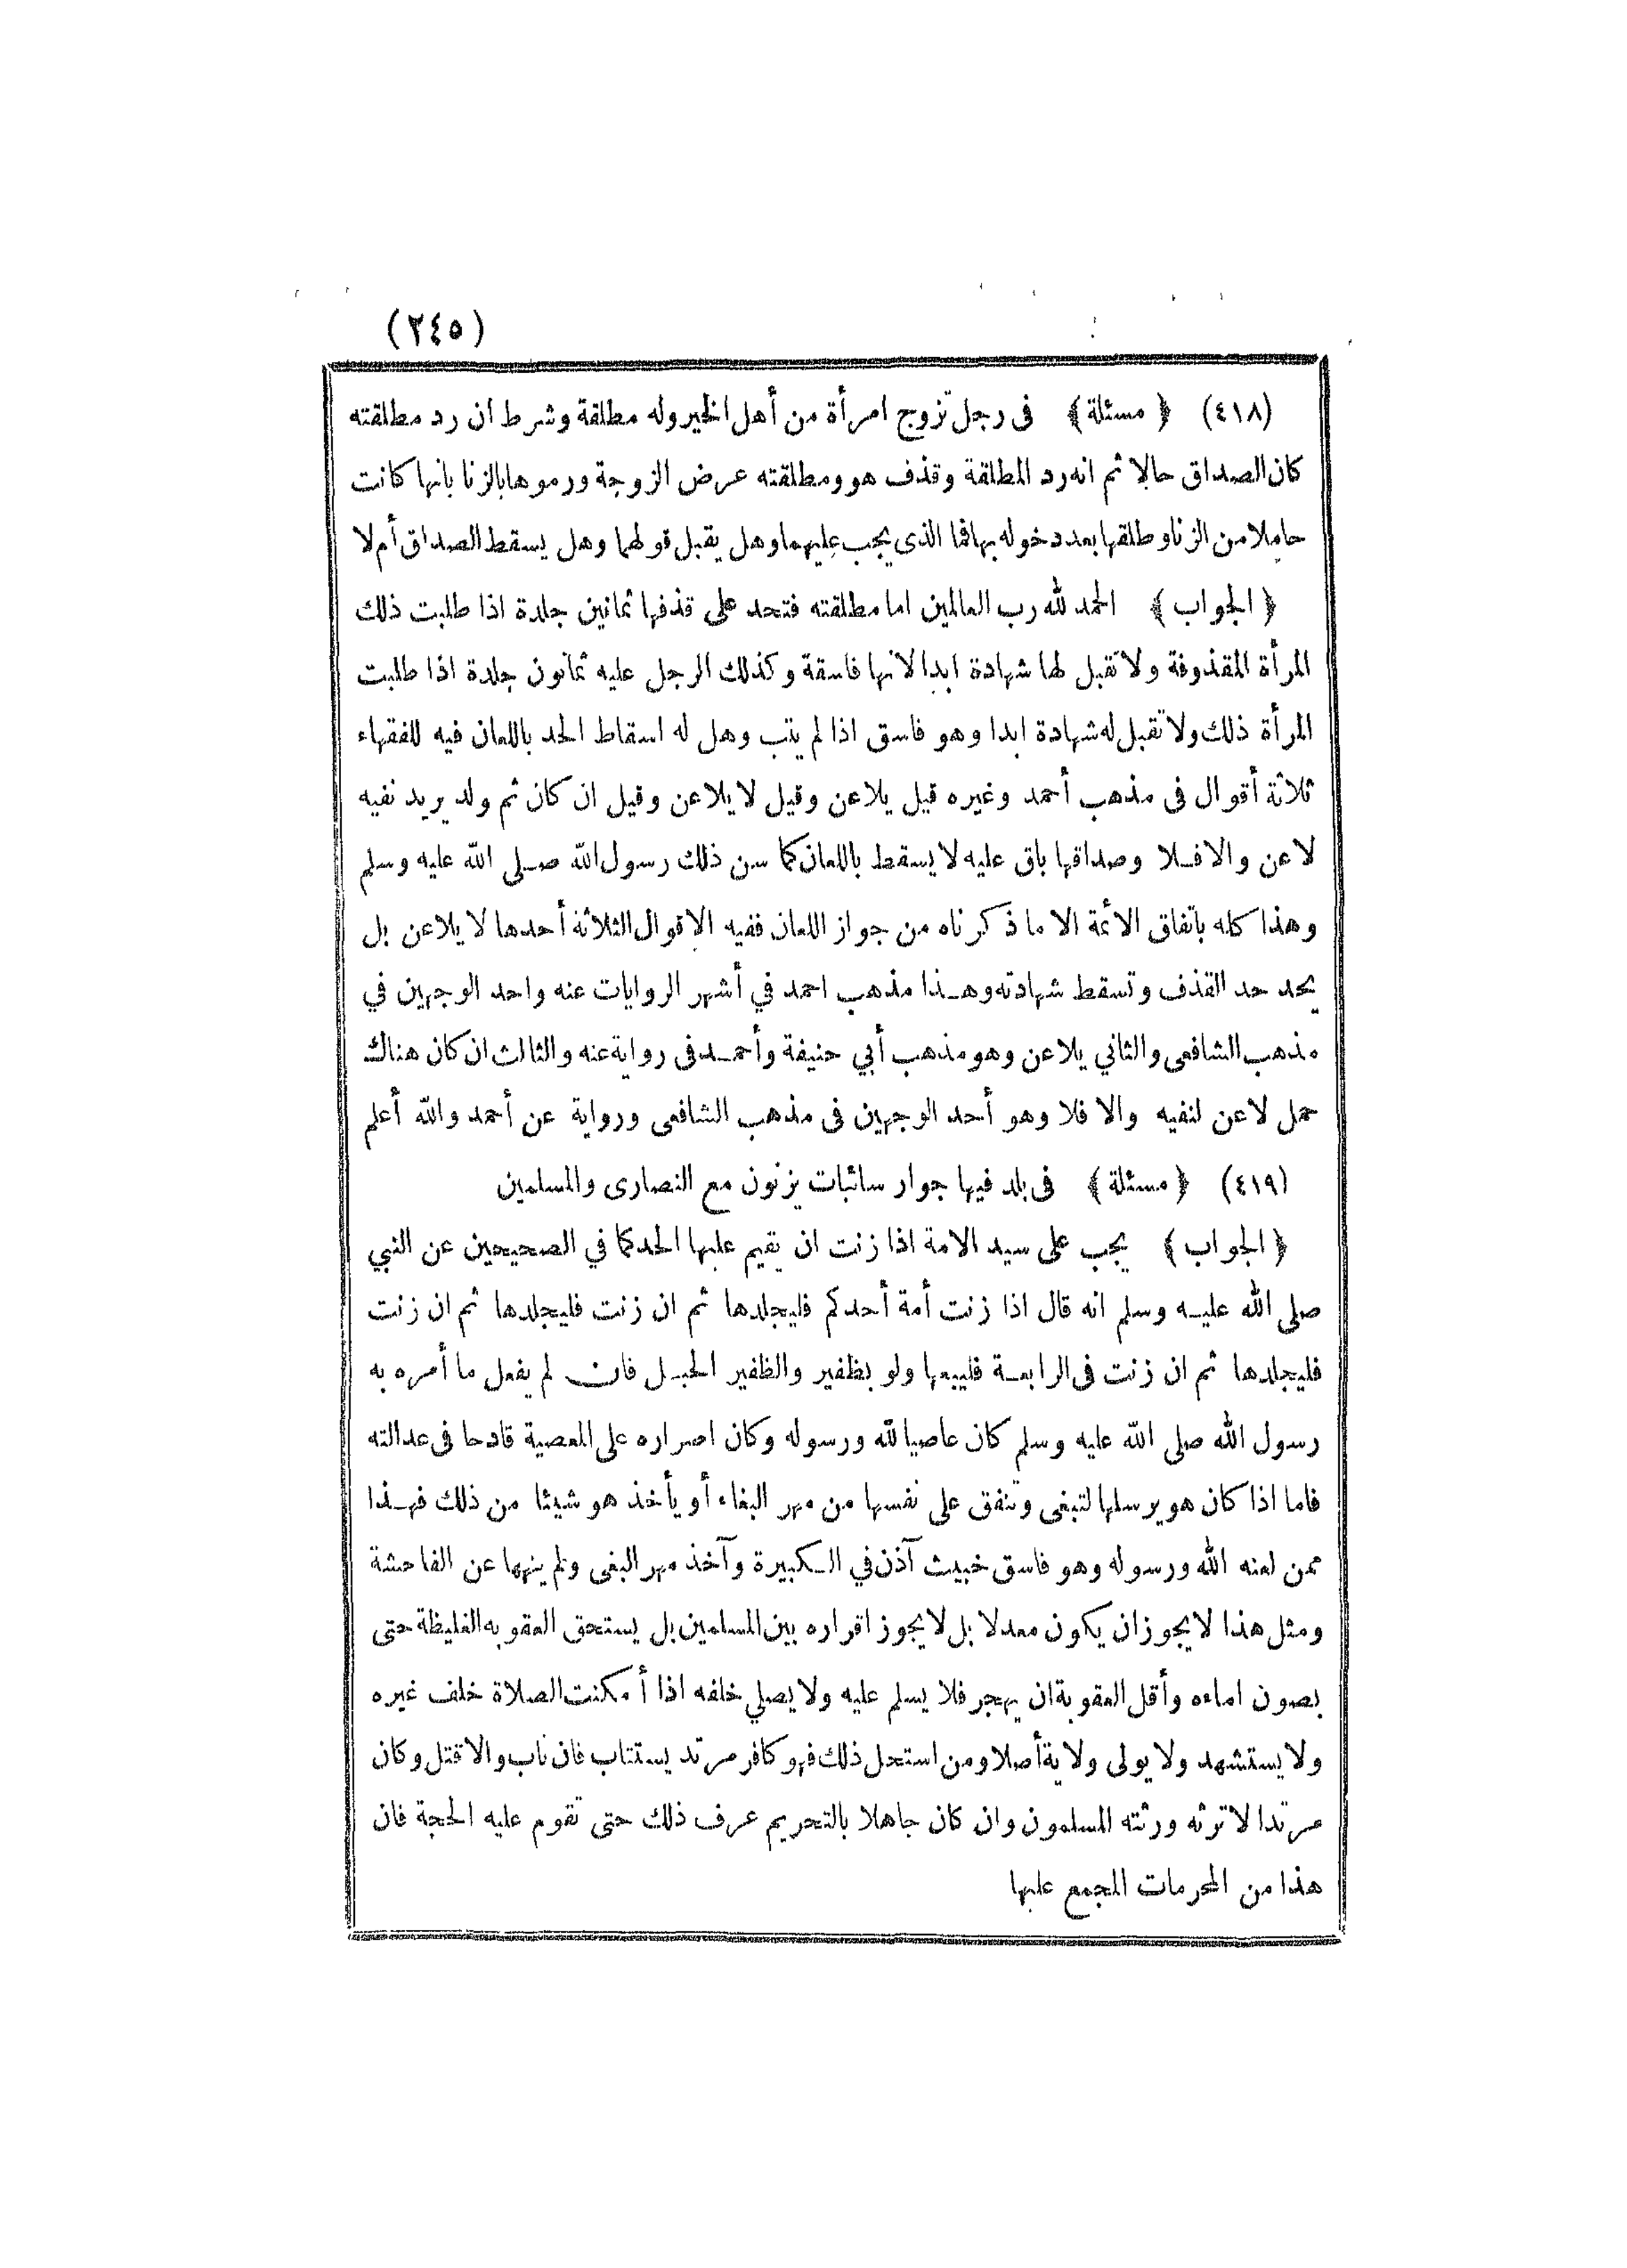 (٢٤٥)
(٤١٨) ﴿ مسئلة ﴾ فى رجل تزوج امرأة من أهل الخير وله مطلقة وشرط ان رد مطلقته
كان الصداق حالا ثم انه رد المطلقة وقذف هو ومطلقته عرض الزوجة ورموها بالزنا بانها كانت
حاملا من الزنا وطلقها بعد دخوله بها فما الذى يجب عليهما وهل يقبل قولهما وهل يسقط الصداق أم لا
﴿ الجواب ﴾ الحمد لله رب العالمين اما مطلقته فتحد على قذفها ثمانين جلدة اذا طلبت ذلك
المرأة المقذوفة ولا تقبل لها شهادة ابدا لانها فاسقة وكذلك الرجل عليه ثمانون جلدة اذا طلبت
المرأة ذلك ولا تقبل له شهادة ابدا وهو فاسق اذا لم يتب وهل له اسقاط الحد باللعان فيه للفقهاء
ثلاثة أقوال فى مذهب أحمد وغيره قيل يلاعن وقيل لا يلاعن وقيل ان كان ثم ولد يريد نفيه
لاعن والا فلا وصداقها باق عليه لا يسقط باللعان كما سن ذلك رسول الله صلى الله عليه وسلم
وهذا كله باتفاق الائمة الا ما ذكرناه من جواز اللعان ففيه الاقوال الثلاثة أحدها لا يلاعن بل
يحد حد القذف وتسقط شهادته وهذا مذهب احمد في أشهر الروايات عنه واحد الوجهين في
مذهب الشافعى والثاني يلاعن وهو مذهب أبي حنيفة وأحمد فى رواية عنه والثالث ان كان هناك
حمل لاعن لنفيه والا فلا وهو أحد الوجهين فى مذهب الشافعى ورواية عن أحمد والله أعلم
(٤١٩) ﴿ مسئلة ﴾ فى بلد فيها جوار سائبات يزنون مع النصارى والمسلمين
﴿ الجواب ﴾ يجب على سيد الامة اذا زنت ان يقيم عليها الحد كما في الصحيحين عن النبي
صلى الله عليه وسلم انه قال اذا زنت أمة أحدكم فليجلدها ثم ان زنت فليجلدها ثم ان زنت
فليجلدها ثم ان زنت فى الرابعة فليبعها ولو بظفير والظفير الحبل فان لم يفعل ما أمره به
رسول الله صلى الله عليه وسلم كان عاصيا لله ورسوله وكان اصراره على المعصية قادحا فى عدالته
فاما اذا كان هو يرسلها لتبغى وتنفق على نفسها من مهر البغاء أو يأخذ هو شيئا من ذلك فهذا
ممن لعنه الله ورسوله وهو فاسق خبيث آذن في الكبيرة وآخذ مهر البغى ولم ينهها عن الفاحشة
ومثل هذا لا يجوز ان يكون معدلا بل لا يجوز اقراره بين المسلمين بل يستحق العقوبه الغليظة حتى
يصون اماءه وأقل العقوبة ان يهجر فلا يسلم عليه ولا يصلي خلفه اذا أمكنت الصلاة خلف غيره
ولا يستشهد ولا يولى ولاية أصلا ومن استحل ذلك فهو كافر مرتد يستتاب فان تاب والا قتل وكان
مرتدا لا ترثه ورثته المسلمون وان كان جاهلا بالتحريم عرف ذلك حتى تقوم عليه الحجة فان
هذا من المحرمات المجمع عليها